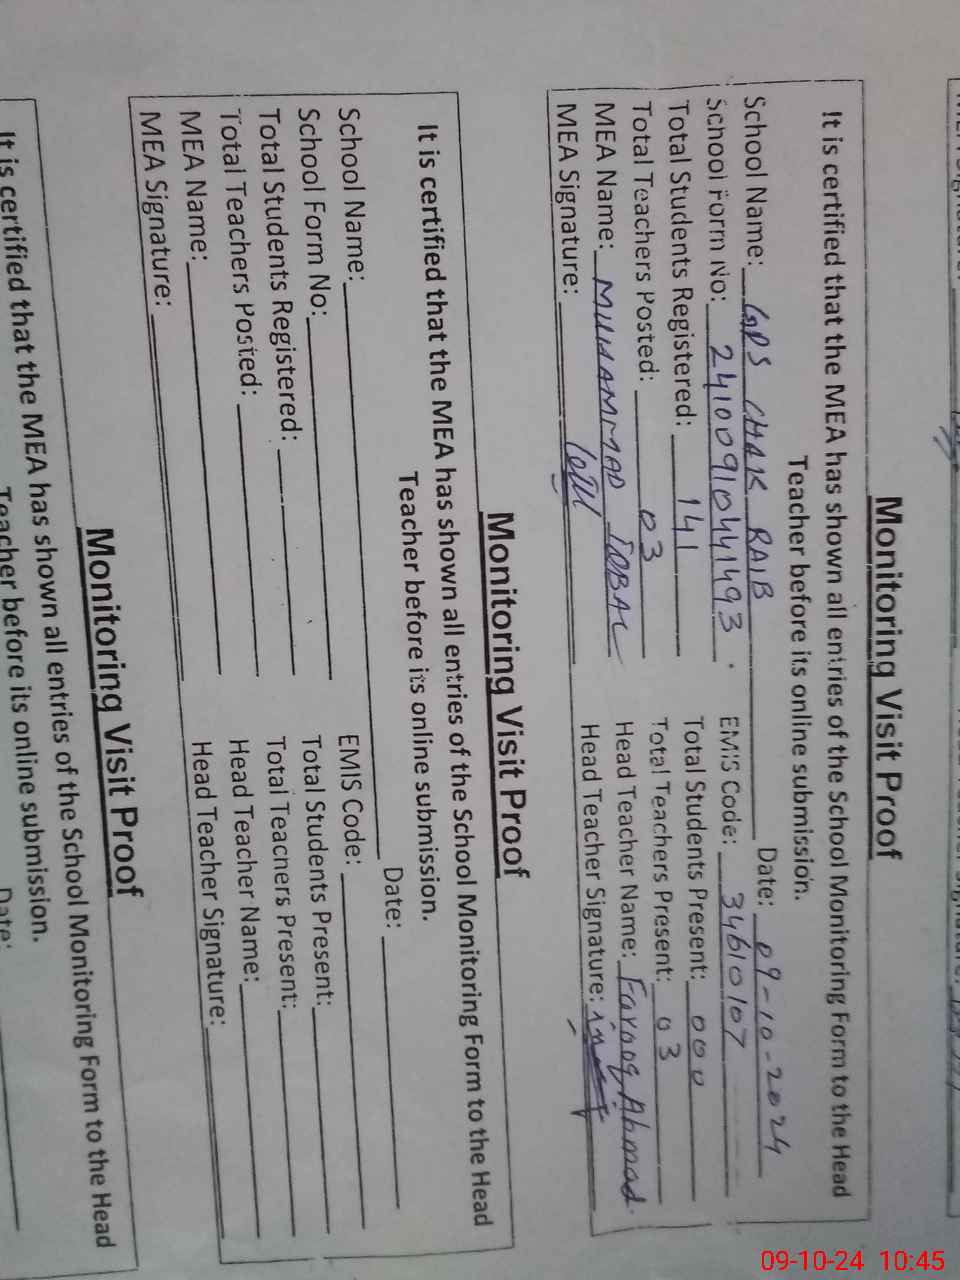 Monitoring Visit Proof
It is certified that the MEA has shown all entries of the School Monitoring Form to the Head
Teacher before its online submission.
Date: 09-10-2024
School Name: GPS CHAK RAIB
School Form No: 24100910441493. EMIS Code: 34610107
Total Students Registered: 141 Total Students Present: 000
Total Teachers Posted: 03 Total Teachers Present: 03
MEA Name: MUHAMMAD IQBAL Head Teacher Name: Farooq Ahmad.
MEA Signature: Head Teacher Signature:
Monitoring Visit Proof
It is certified that the MEA has shown all entries of the School Monitoring Form to the Head
Teacher before its online submission.
Date:
School Name:
School Form No: EMIS Code:
Total Students Registered: Total Students Present:
Total Teachers Posted: Total Teachers Present:
MEA Name: Head Teacher Name:
MEA Signature: Head Teacher Signature:
Monitoring Visit Proof
It is certified that the MEA has shown all entries of the School Monitoring Form to the Head
Teacher before its online submission.
Date:
09-10-24 10:45